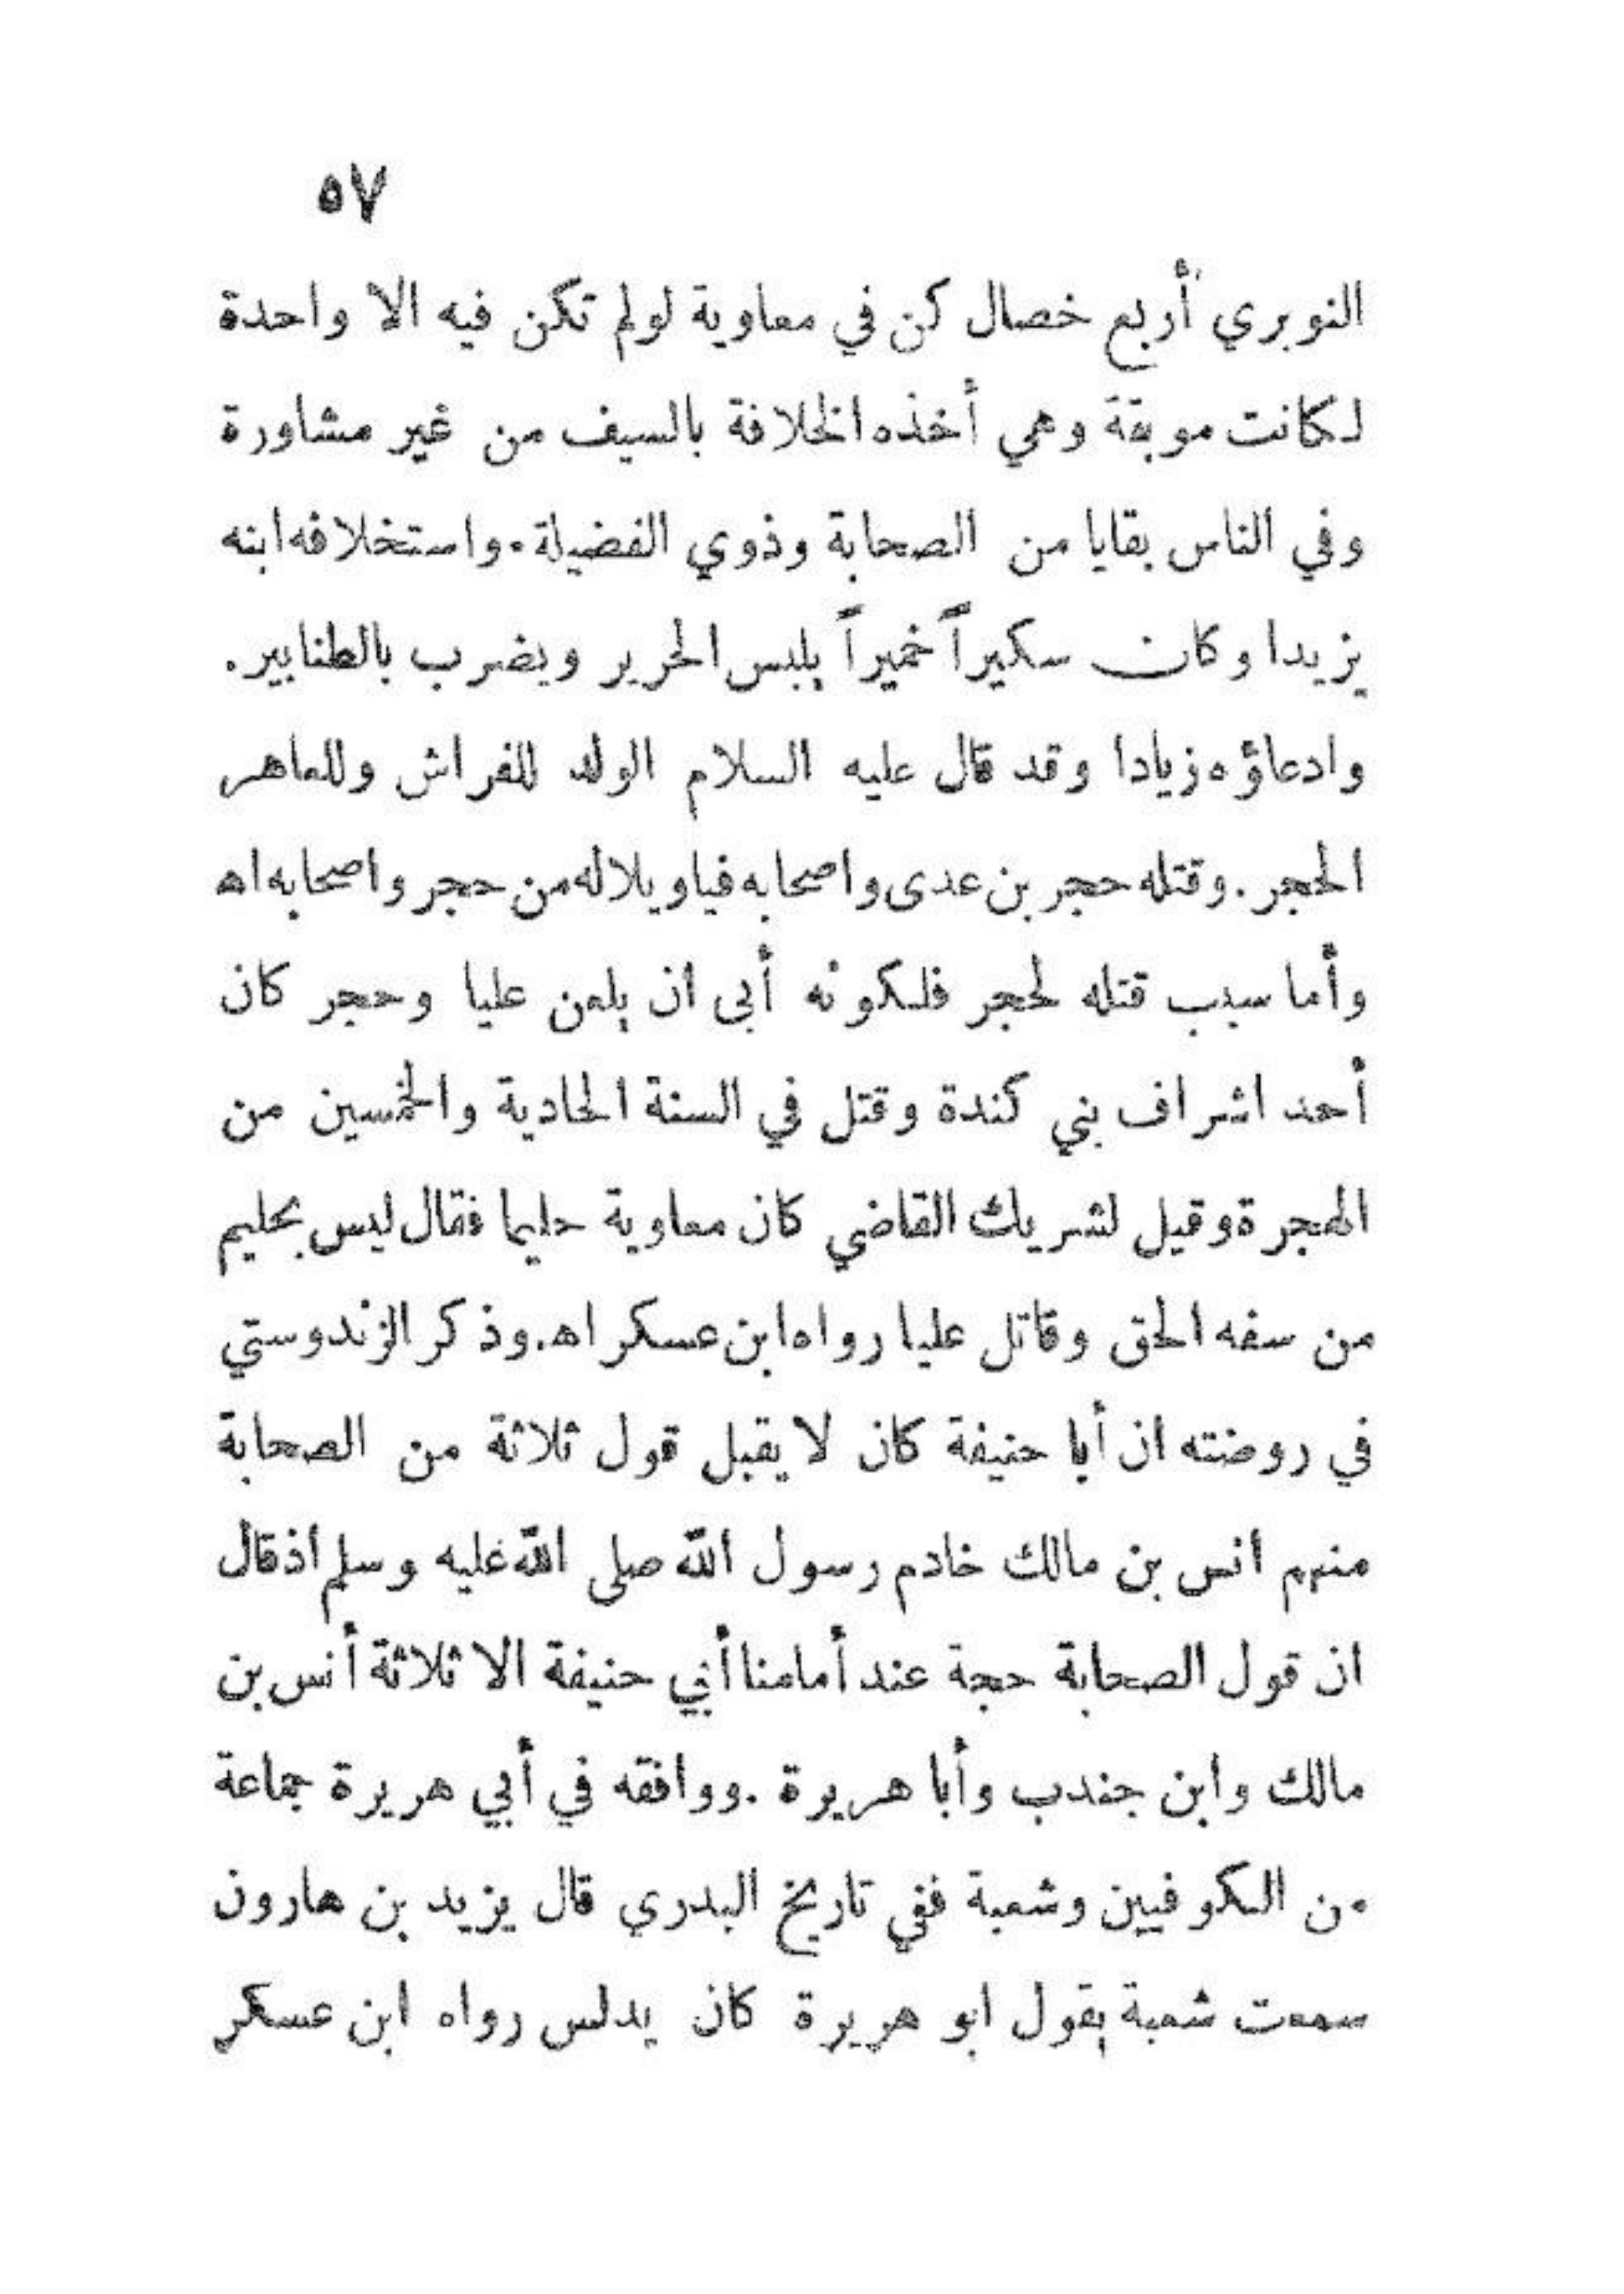 ٥٧
النوبري أربع خصال كن في معاوية لولم تكن فيه الا واحدة
لكانت موبقة وهي أخذه الخلافة بالسيف من غير مشاورة
وفي الناس بقايا من الصحابة وذوي الفضيلة. واستخلافه ابنه
يزيدا وكان سكيراً خميراً يلبس الحرير ويضرب بالطنابير.
وادعاؤه زيادا وقد قال عليه السلام الولد للفراش وللعاهر
الحجر. وقتله حجر بن عدى واصحابه فياويلا له من حجر واصحابه اه
وأما سبب قتله لحجر فلكونه أبى ان يلعن عليا وحجر كان
أحد اشراف بني كندة وقتل في السنة الحادية والخمسين من
الهجرة وقيل لشريك القاضي كان معاوية حليما فقال ليس بحليم
من سفه الحق وقاتل عليا رواه ابن عسكر اه. وذكر الزندوستي
في روضته ان أبا حنيفة كان لا يقبل قول ثلاثة من الصحابة
منهم انس بن مالك خادم رسول الله صلى الله عليه وسلم أذقال
ان قول الصحابة حجة عند أمامنا أبي حنيفة الا ثلاثة أنس بن
مالك وابن جندب وأبا هريرة. ووافقه في أبي هريرة جماعة
من الكوفيين وشعبة ففي تاريخ البدري قال يزيد بن هارون
سمعت شعبة يقول ابو هريرة كان يدلس رواه ابن عسكر